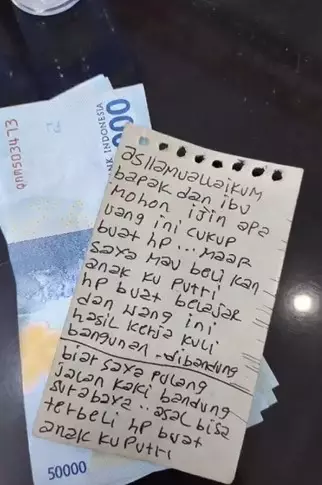 QNM503473
BANK INDONESIA
00
asllamuallaikum
bapak dan ibu
Mohon ijin apa
uang ini cukup
buat hp... maaf
saya mau beli kan
anak ku putri
hp buat belajar
dan uang ini
hasil kerja kuli
bangunan..dibandung
biar saya pulang
jalan kaki bandung
surabaya.. asal bisa
terbeli hp buat
anak ku putri
50000